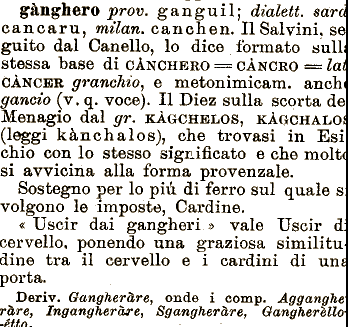 gànghero prov. ganguil; dialett. sard
cancaru, milan. canchen. Il Salvini, se
guito dal Canello, lo dice formato sull
stessa base di CÀNCHERO = CÀNCRO = lat
CÀNCER granchio, e metonimicam. anch
gancio (v. q. voce). Il Diez sulla scorta de
Menagio dal gr. KÁGCHELOS, KÁGCHALOS
(leggi kànchalos), che trovasi in Esi
chio con lo stesso significato e che molto
si avvicina alla forma provenzale.
Sostegno per lo più di ferro sul quale s
volgono le imposte, Cardine.
« Uscir dai gangheri » vale Uscir d
cervello, ponendo una graziosa similitu
dine tra il cervello e i cardini di una
porta.
Deriv. Gangheràre, onde i comp. Agganghe
ràre, Ingangheràre, Sgangheràre, Gangherèllo
-étto.